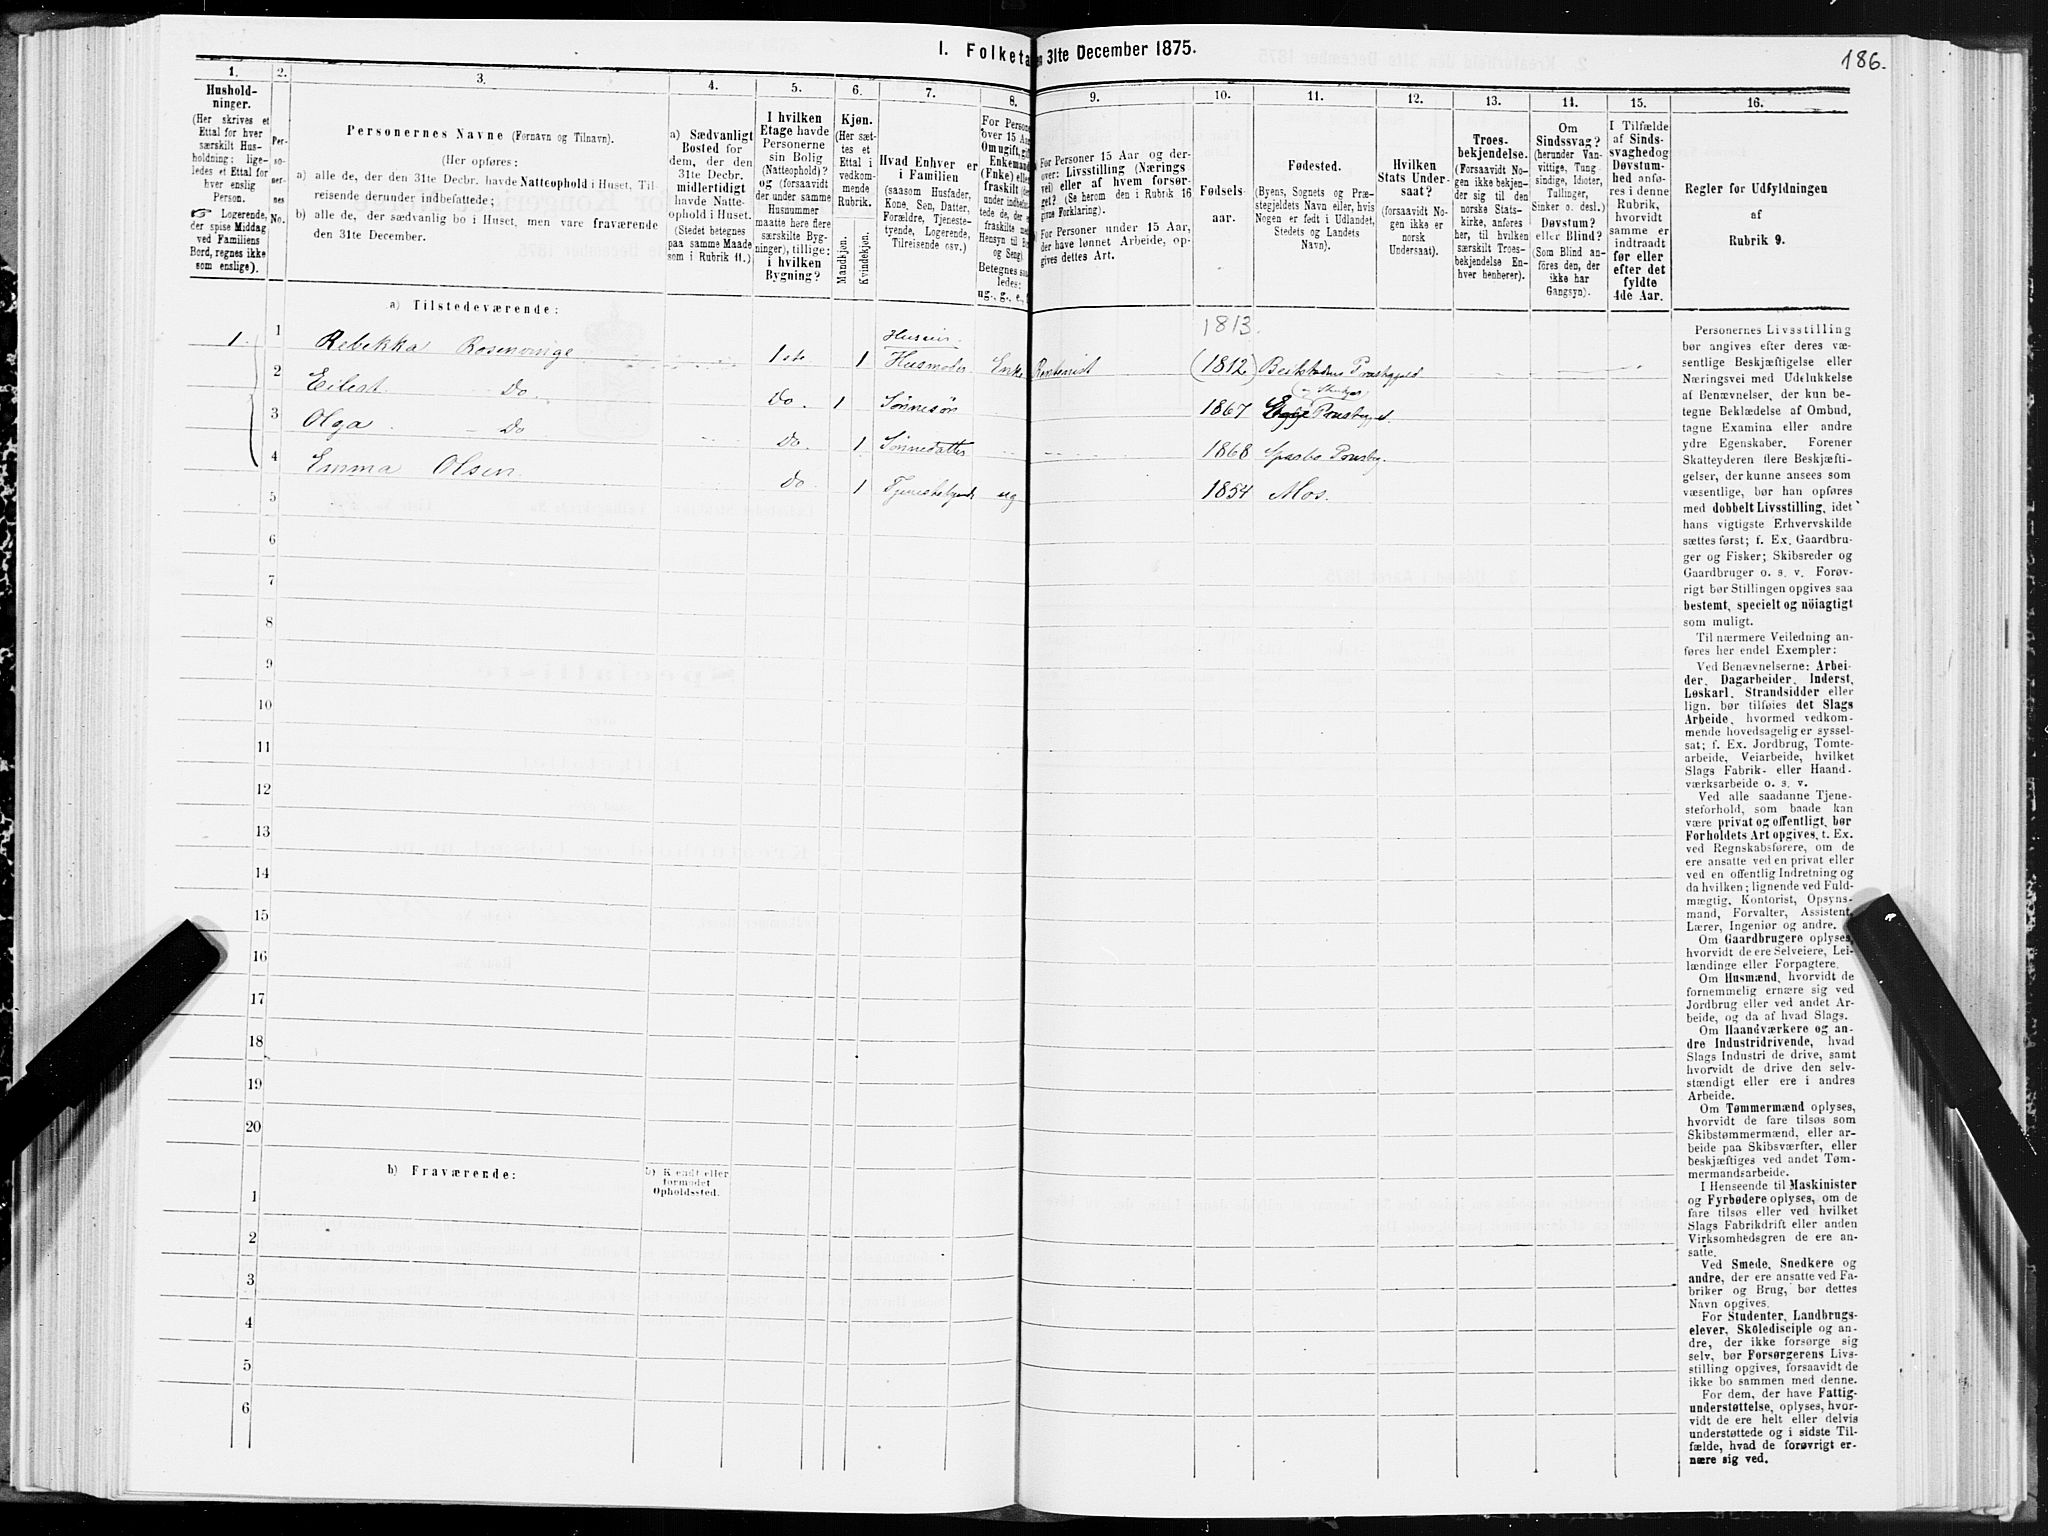 I. Folketa en 31te December 1875.
186.
1.
2.
3.
4.
5.
6.
7.
8.
9.
10.
11.
12.
13.
14.
15.
16.
Hushold-
ninger.
(Her skrives et
Ettal for hver
særskilt Hus-
holdning; lige-
ledes et Ettal for
hver enslig
Person.
☞ Logerende,
der spise Middag
ved Familiens
Bord, regnes ikke
som enslige).
Per-
so-
ner-
nes
No.
Personernes Navne (Fornavn og Tilnavn).
(Her opføres:
a) alle de, der den 31te Decbr. havde Natteophold i Huset, Til-
reisende derunder indbefattede;
b) alle de, der sædvanlig bo i Huset, men vare fraværende
den 31te December.
a) Sædvanligt
Bosted for
dem, der den
31te Decbr.
midlertidigt
havde Natte-
ophold i Huset.
(Stedet betegnes
paa samme Maade
som i Rubrik 11.)
I hvilken
Etage havde
Personerne
sin Bolig
(Natteophold)?
og (forsaavidt
der under samme
Husnummer
maatte here flere
særskilte Byg-
ninger), tillige:
i hvilken
Bygning?
Kjøn.
(Her sæt-
tes et
Ettal i
vedkom-
mende
Rubrik.
Mandkjøn.
Kvindekjøn.
Hvad Enhver er
i Familien
(saasom Husfader,
Kone, Søn, Datter,
Forældre, Tjeneste-
tyende, Logerende,
Tilreisende osv.)
For Persone
over 15 Aar
Om ugift, gift
Enkemand
(Enke) elle
fraskilt (der-
under indbefat-
tede de, der er
fraskilte med
Hensyn til B
og Seng).
Betegnes saa-
ledes:
ug., g., e., f
For Personer 15 Aar og der-
over: Livsstilling (Nærings
vei) eller af hvem forsør-
get? (Se herom den i Rubrik 16
givne Forklaring).
For Personer under 15 Aar,
der have lønnet Arbeide, op-
gives dettes Art.
Fødsels-
aar.
Fødested.
(Byens, Sognets og Præ-
stegjeldets Navn eller, hvis
Nogen er født i Udlandet,
Stedets og Landets
Navn).
Hvilken
Stats Under-
saat?
(forsaavidt No-
gen ikke er
norsk
Undersaat).
Troes-
bekjendelse.
(Forsaavidt No-
gen ikke bekjen-
der sig til den
norske Stats-
kirke, anføres
her, til hvilken
særskilt Troes-
bekjendelse En-
hver henhører).
Om
Sindssvag?
(herunder Van-
vittige, Tung-
sindige, Idioter,
Tullinger,
Sinker o. desl.)
Døvstum?
eller Blind?
(Som Blind an-
føres den, der
ikke har
Gangsyn).
I Tilfælde
af Sinds-
svaghed og
Døvstum-
hed anfø-
res i denne
Rubrik,
hvorvidt
samme er
indtraadt
før eller
efter det
fyldte
4de Aar.
Regler for Udfyldningen
af
Rubrik 9.
a) Tilstedeværende:
1813.
1 1 Rebekka Rosenvinge 1ste 1 Husmoder Enke Rentenist (1812)
2 Eilert Do Do 1 Sønnesøn 1867 Egge
3 Olga Do Do 1 Sønnedatter 1868
4 Emma Olsen Do 1 ug 1854 Mos.
5
6
7
8
9
10
11
12
13
14
15
16
17
18
19
20
b) Fraværende:
b) Kjendt eller
formodet
Opholdssted.
1
2
3
4
5
6
Personernes Livsstilling
bør angives efter deres væ-
sentlige Beskjæftigelse eller
Næringsvei med Udelukkelse
af Benævnelser, der kun be-
tegne Beklædelse af Ombud,
tagne Examina eller andre
ydre Egenskaber. Forener
Skatteyderen flere Beskjæfti-
gelser, der kunne ansees som
væsentlige, bør han opføres
med dobbelt Livsstilling, idet
hans vigtigste Erhvervskilde
sættes først; f. Ex. Gaardbru-
ger og Fisker; Skibsreder og
Gaardbruger o. s. v. Forøv-
rigt bør Stillingen opgives saa
bestemt, specielt og nöiagtigt
som muligt.
Til nærmere Veiledning an-
føres her endel Exempler:
Ved Benævnelserne: Arbei-
der, Dagarbeider, Inderst,
Løskarl, Strandsidder eller
lign. bør tilføies det Slags
Arbeide, hvormed vedkom-
mende hovedsagelig er syssel-
sat; f. Ex. Jordbrug, Tomte-
arbeide, Veiarbeide, hvilket
Slags Fabrik- eller Haand-
værksarbeide o. s. v.
Ved alle saadanne Tjene-
steforhold, som baade kan
være privat og offentligt, bør
Forholdets Art opgives, t. Ex.
ved Regnskabsførere, om de
ere ansatte ved en privat eller
ved en offentlig Indretning og
da hvilken; lignende ved Fuld-
mægtig, Kontorist, Opsyns-
mand, Forvalter, Assistent,
Lærer, Ingeniør og andre.
Om Gaardbrugere oplyses,
hvorvidt de ere Selveiere, Lei-
lændinge eller Forpagtere.
Om Husmænd, hvorvidt de
fornemmelig ernære sig ved
Jordbrug eller ved andet Ar-
beide, og da af hvad Slags.
Om Haandværkere og an-
dre Industridrivende, hvad
Slags Industri de drive, samt
hvorvidt de drive den selv-
stændigt eller ere i andres
Arbeide.
Om Tømmermænd oplyses,
hvorvidt de fare tilsøs som
Skibstømmermænd, eller ar-
beide paa Skibsværfter, eller
beskjæftiges ved andet Tøm-
mermandsarbeide.
I Henseende til Maskinister
og Fyrbødere oplyses, om de
fare tilsøs eller ved hvilket
Slags Fabrikdrift eller anden
Virksomhedsgren de ere an-
satte.
Ved Smede, Snedkere og
andre, der ere ansatte ved Fa-
briker og Brug, bør dettes
Navn opgives.
For Studenter, Landbrugs-
elever, Skoledisciple og an-
dre, der ikke forsørge sig
selv, bør Forsørgerens Livs-
stilling opgives, forsaavidt de
ikke bo sammen med denne.
For dem, der have Fattig-
understøttelse, oplyses, hvor-
vidt de ere helt eller delvis
understøttede og i sidste Til-
fælde, hvad de forøvrigt er-
nære sig ved.